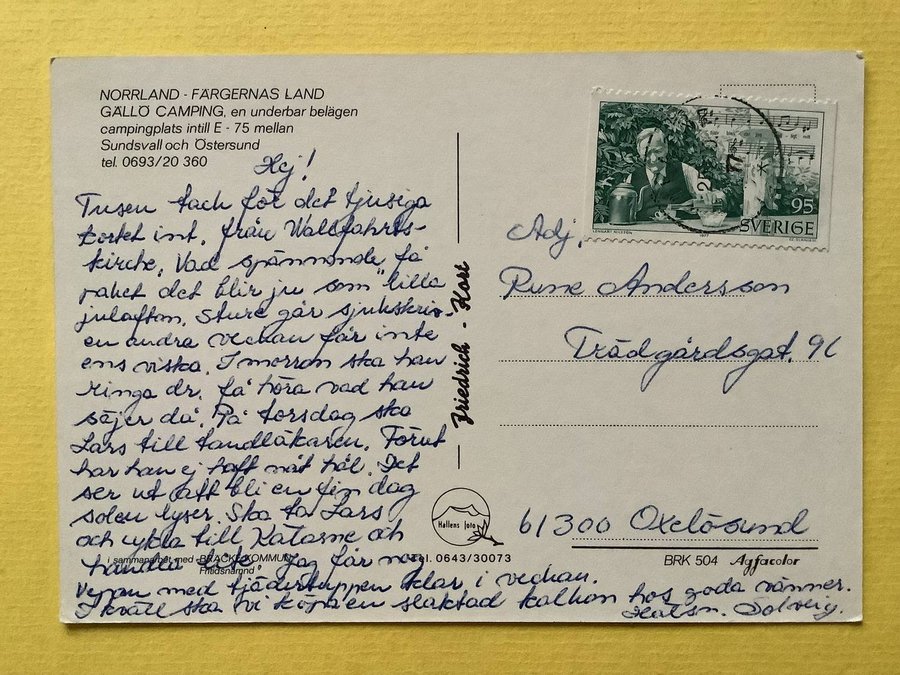 NORRLAND - FÄRGERNAS LAND
GÄLLÖ CAMPING, en underbar belägen
campingplats intill E - 75 mellan
Sundsvall och Östersund
tel. 0693/20 360
Hej!
Tusen tack för det tjusiga
kortet int. från Wallfahrts-
kirche. Vad spännande få
paket det blir ju som "lilla
julafton. Sture går sjukskriv-
en andra veckan får inte
ens viska. I morron ska han
ringa dr. få höra vad han
säjer då. På torsdag ska
Lars till tandläkaren. Förut
har han ej haft nåt hål. Det
ser ut att bli en fin dag
solen lyser. Ska ta Lars
och cykla till och
handla Jag får nog
med tjädertuppen klar i veckan.
I kväll ska vi köpa en slaktad kalkon hos goda vänner.
Hälsn. Solveig.
i samarbete med BRÄCKE KOMMUN
Fritidsnämnd
Friedrich - Kort
Hallens foto
Tel. 0643/30073
LENNART NILSSON
1977
95
SVERIGE
Adj.
Rune Andersson
Trädgårdsgat. 9C
61300 Oxelösund
BRK 504 Agfacolor